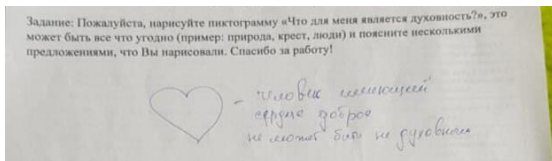 Задание: Пожалуйста, нарисуйте пиктограмму «Что для меня является духовность?», это
может быть все что угодно (пример: природа, крест, люди) и поясните несколькими
предложениями, что Вы нарисовали. Спасибо за работу!
- человек имеющий
сердце доброе
не может быть не духовным